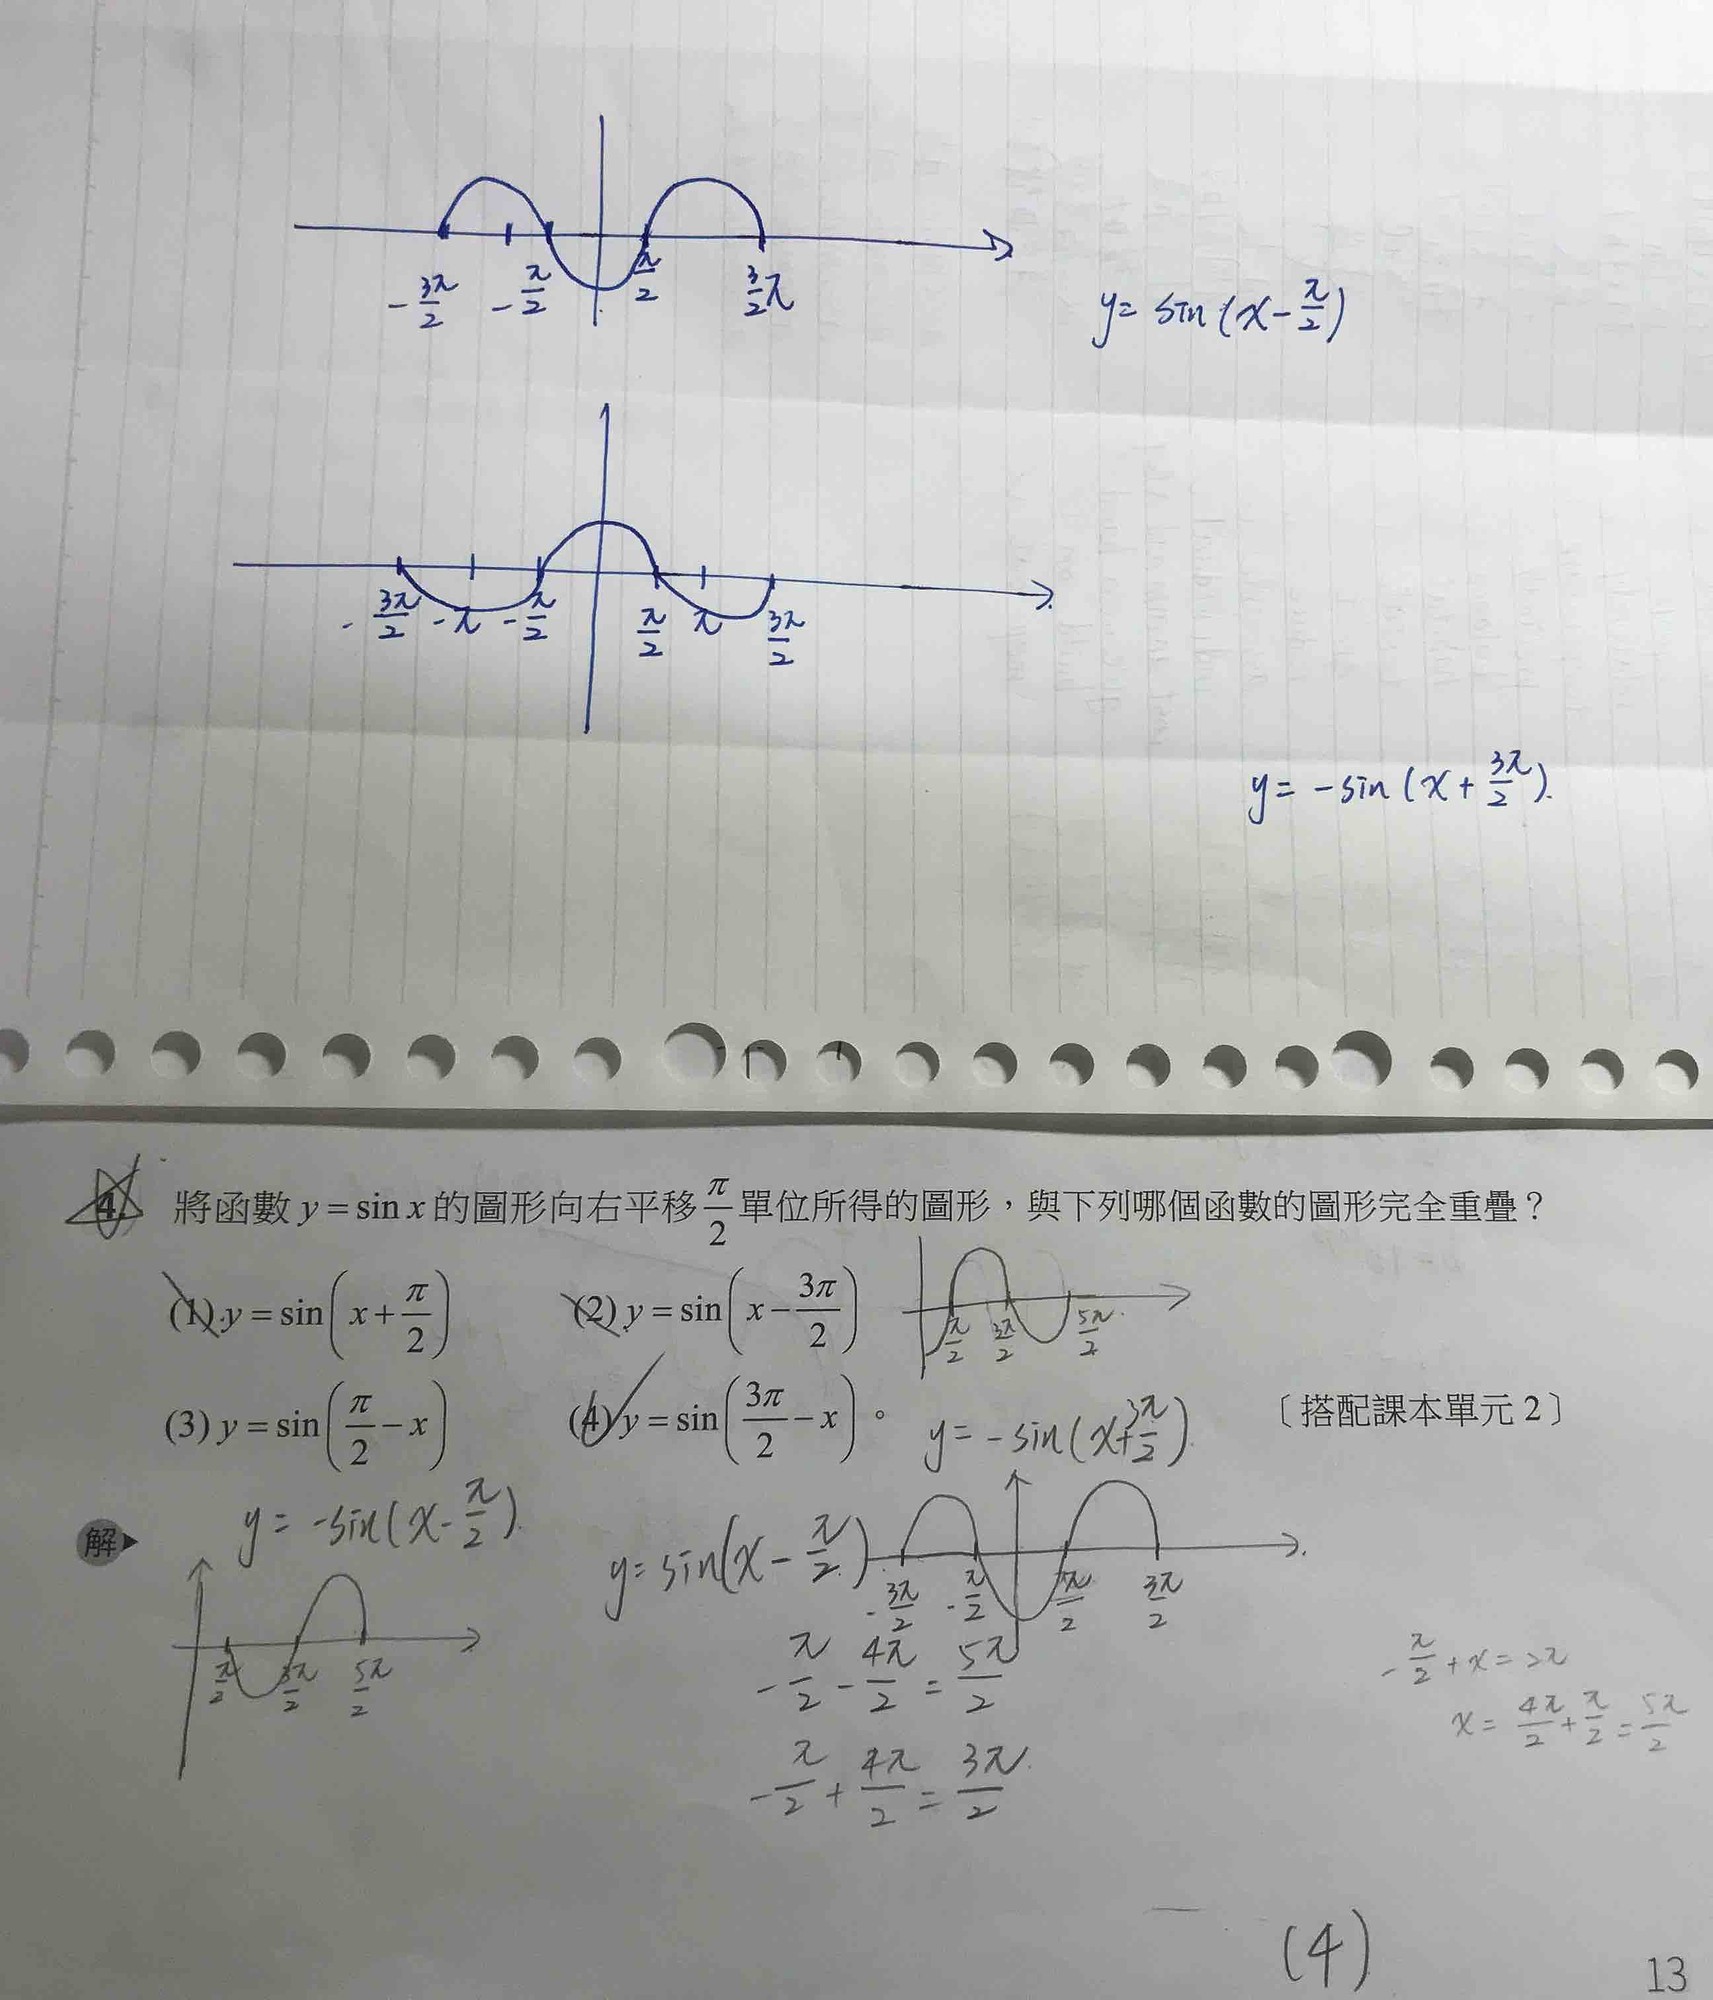 -3π/2 -π/2 π/2 3/2π
y= sin(x-π/2)
-3π/2 -π -π/2 π/2 π 3π/2
y= -sin(x+3π/2).
4. 將函數 y=sin x 的圖形向右平移 π/2 單位所得的圖形，與下列哪個函數的圖形完全重疊？
(1) y=sin(x+π/2) (2) y=sin(x-3π/2)
π/2 3π/2 5π/2
(3) y=sin(π/2-x) (4) y=sin(3π/2-x)。 〔搭配課本單元 2〕
y= -sin(x+3π/2).
解
y= -sin(x-π/2).
y= sin(x-π/2).
-3π/2 -π/2 π/2 3π/2
π/2 3π/2 5π/2
-π/2-4π/2=5π/2
-π/2+4π/2=3π/2
-π/2+x=2π
x=4π/2+π/2=5π/2
(4)
13